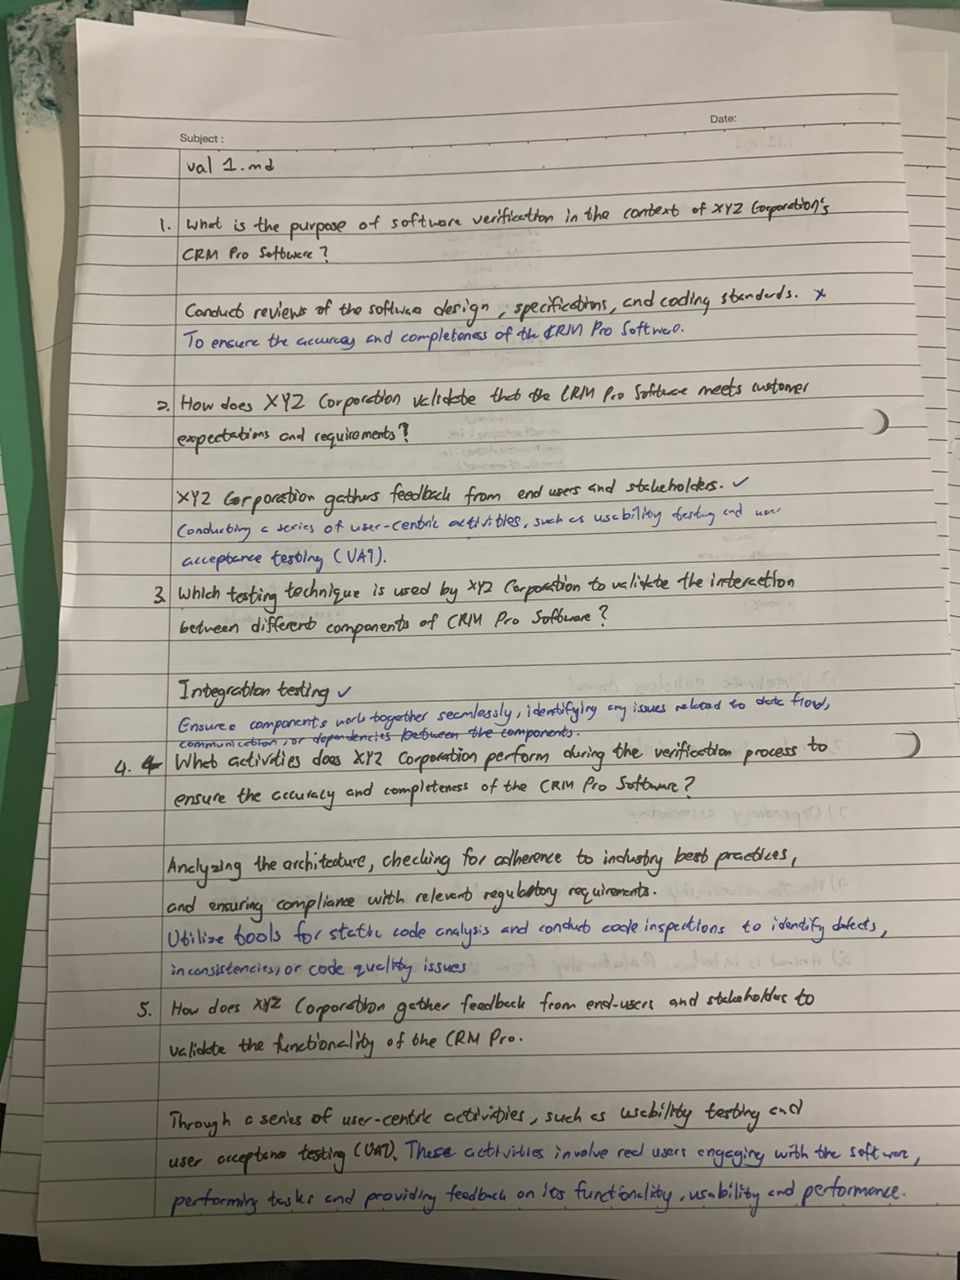 Subject :
Date:
val 1.md
1. What is the purpose of software verification in the context of XYZ Corporation's
CRM Pro Software?
Conduct reviews of the software design, specifications, and coding standards. x
To ensure the accuracy and completeness of the CRM Pro Software.
2. How does XYZ Corporation validate that the CRM Pro Software meets customer
expectations and requirements?
XYZ Corporation gathers feedback from end users and stakeholders. ✓
Conducting a series of user-centric activities, such as usability testing and user
acceptance testing (UAT).
3. Which testing technique is used by XYZ Corporation to validate the interaction
between different components of CRM Pro Software?
Integration testing ✓
Ensures components work together seamlessly, identifying any issues related to data flow,
communication, or dependencies between the components.
4. What activities does XYZ Corporation perform during the verification process to
ensure the accuracy and completeness of the CRM Pro Software?
Analyzing the architecture, checking for adherence to industry best practices,
and ensuring compliance with relevant regulatory requirements.
Utilize tools for static code analysis and conduct code inspections to identify defects,
inconsistencies, or code quality issues
5. How does XYZ Corporation gather feedback from end-users and stakeholders to
validate the functionality of the CRM Pro.
Through a series of user-centric activities, such as usability testing and
user acceptance testing (UAT). These activities involve real users engaging with the software,
performing tasks and providing feedback on its functionality, usability and performance.